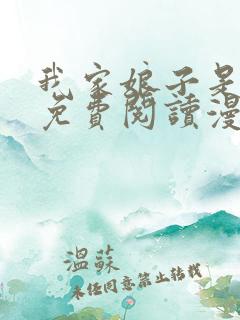 我家娘子是
免費閱讀漫
溫蘇
未经同意禁止转载